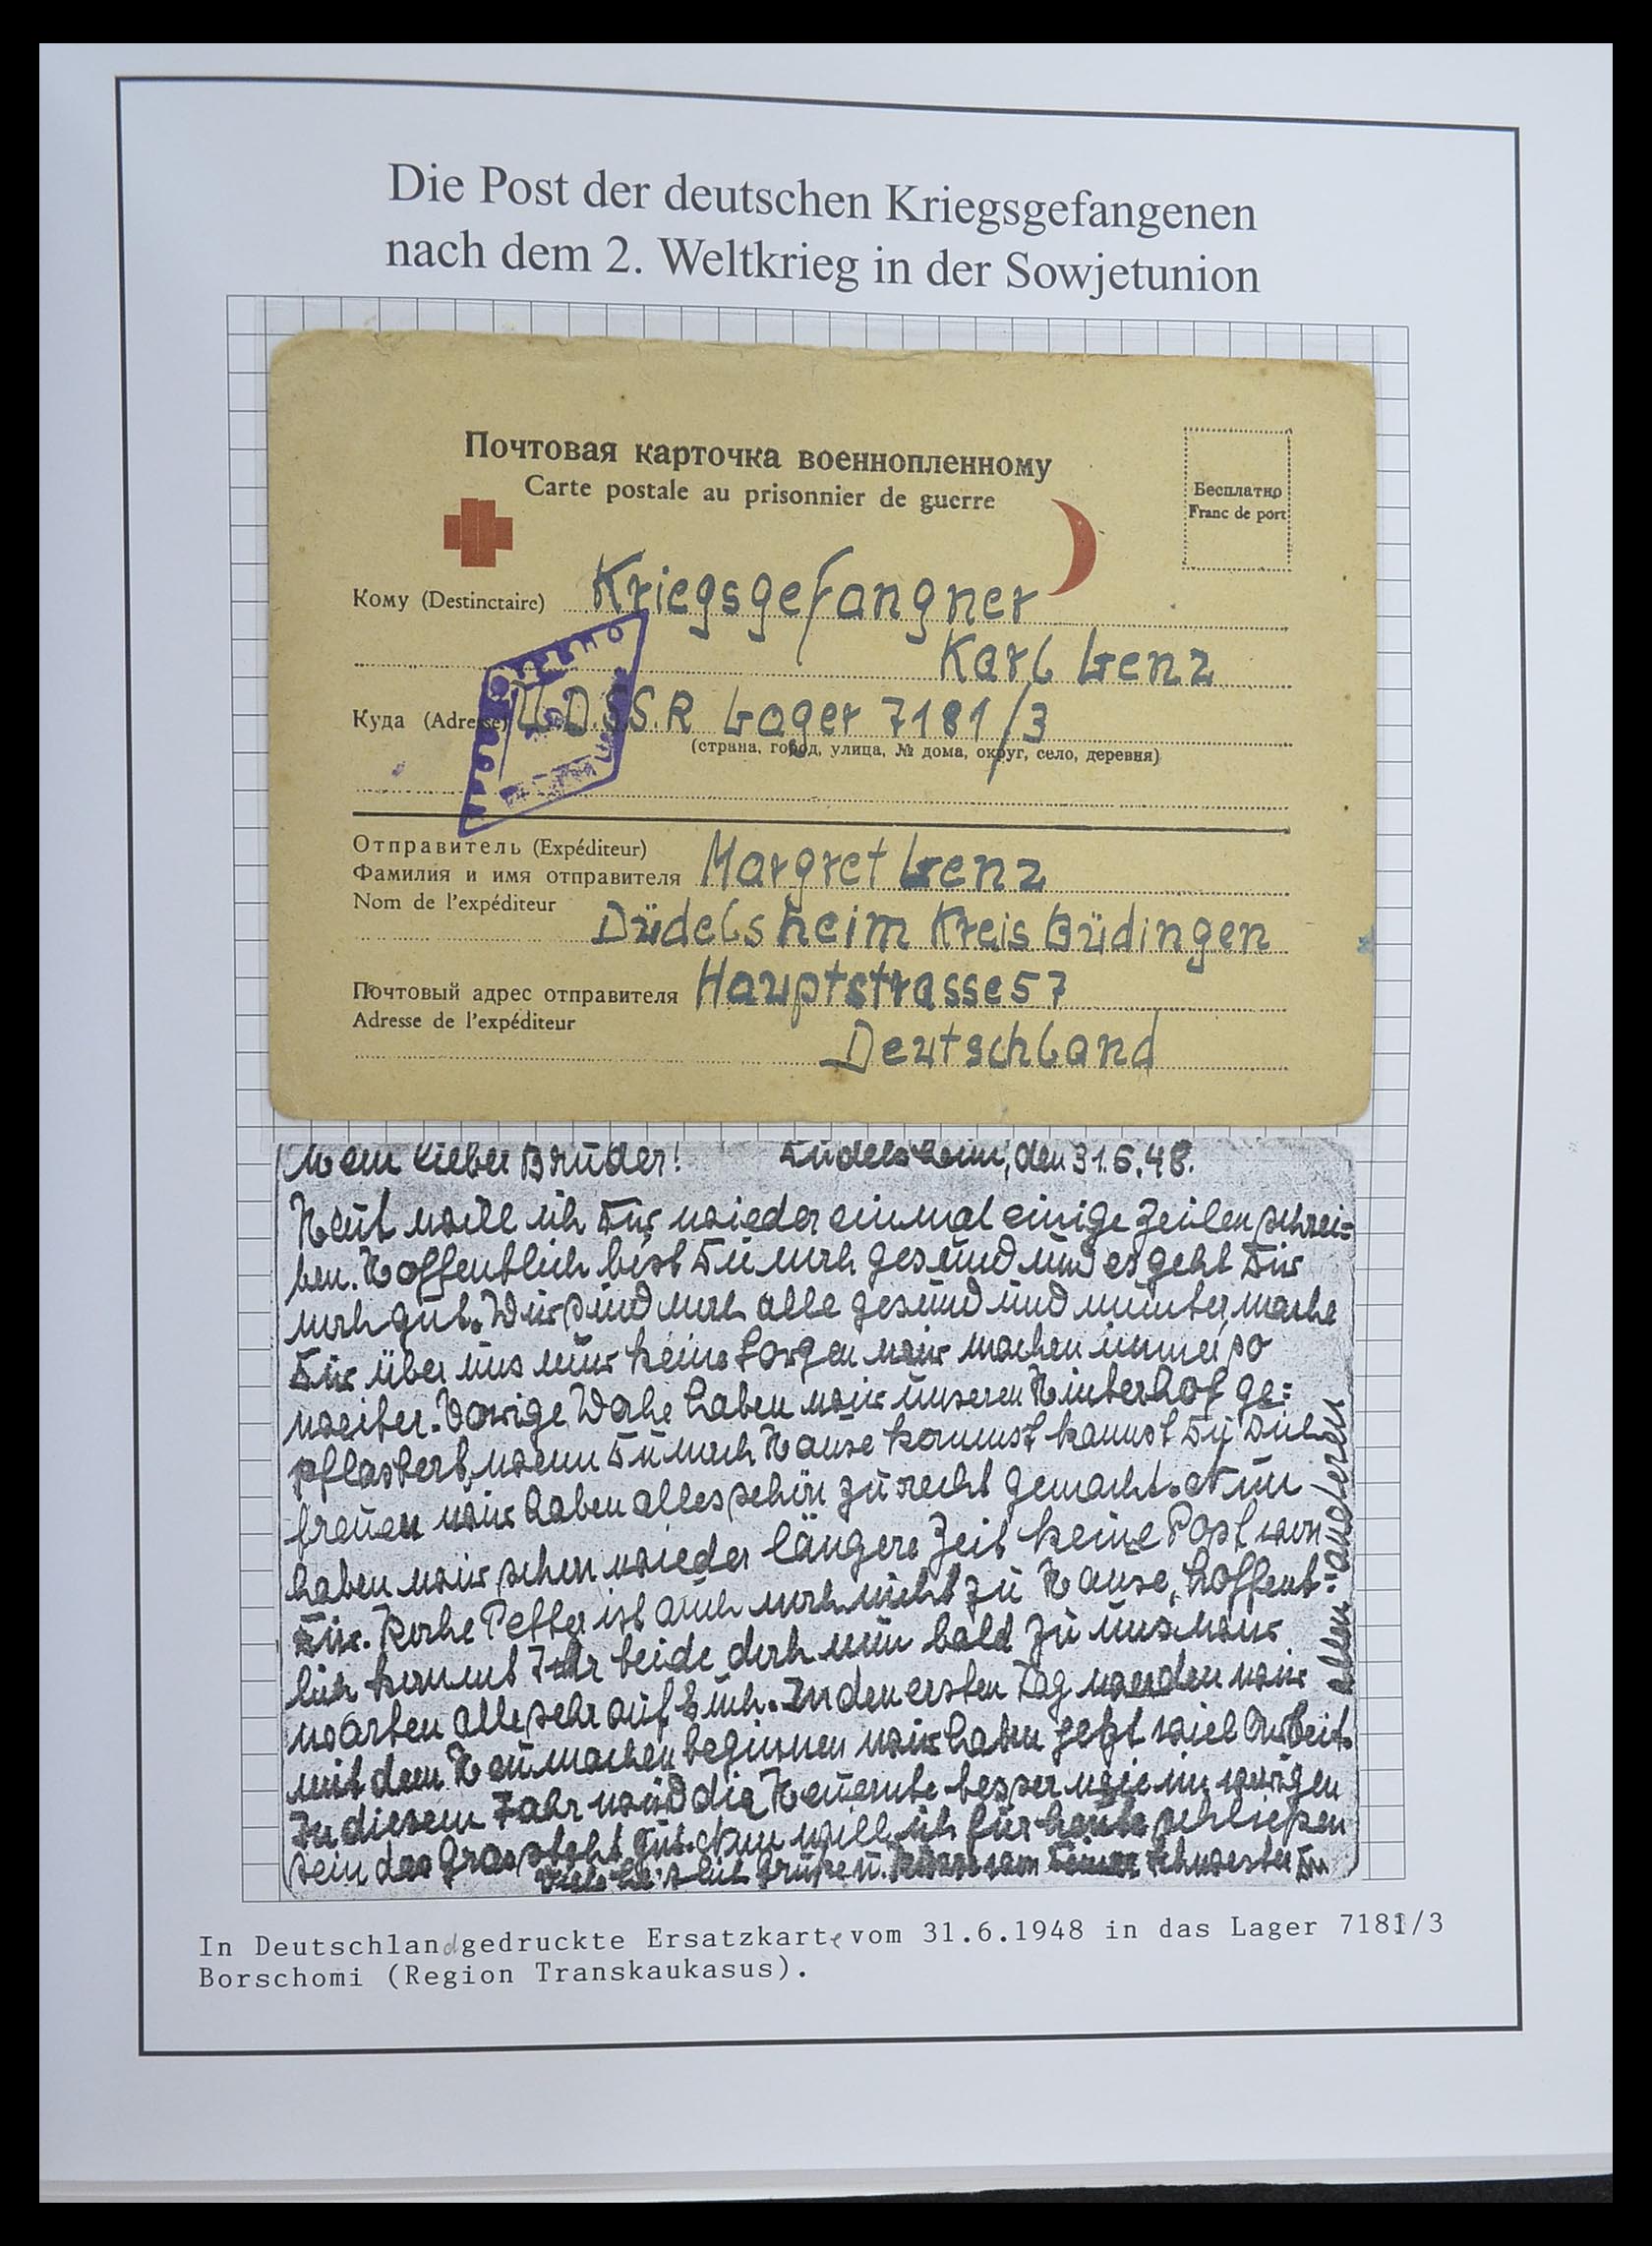 Die Post der deutschen Kriegsgefangenen
nach dem 2. Weltkrieg in der Sowjetunion
Почтовая карточка военнопленному
Carte postale au prisonnier de guerre
Бесплатно
Franc de port
Кому (Destinctaire) Kriegsgefangner
Karl Genz
Куда (Adresse) U.D.S.S.R Lager 7181/3
(страна, город, улица, № дома, округ, село, деревня)
Отправитель (Expéditeur)
Фамилия и имя отправителя Margret Genz
Nom de l'expéditeur
Düdelsheim Kreis Büdingen
Почтовый адрес отправителя Hauptstrasse 57
Adresse de l'expéditeur
Deutschland
Mein lieber Bruder! Düdelsheim, den 31.6.48.
Heut will ich Dir wieder einmal einige Zeilen schrei=
ben. Hoffentlich bist Du noch gesund und es geht Dir
noch gut. Wir sind noch alle gesund und munter, mache
Dir über uns nur keine Sorgen wir machen immer so
weiter. Vorige Woche haben wir unseren Hinterhof ge=
pflastert, wenn Du nach Hause kommst kannst Du Dich
freuen wir haben alles schön zu recht gemacht. Nun
haben wir schon wieder längere Zeit keine Post von
Dir. ist auch noch nicht zu Hause, hoffent=
lich kommt Ihr beide doch nun bald zu uns wir
warten alle sehr auf Euch. In den ersten Tag werden wir
mit dem Heumachen beginnen wir haben jetzt viel Arbeit.
In diesem Jahr wird die Heuernte besser wie im vorigen
sein das Gras steht gut. Nun will ich für heute schließen
Viele herzlich Grüße u. Küsse von Deiner Schwester
allen anderen
In Deutschland gedruckte Ersatzkarte vom 31.6.1948 in das Lager 7181/3
Borschomi (Region Transkaukasus).